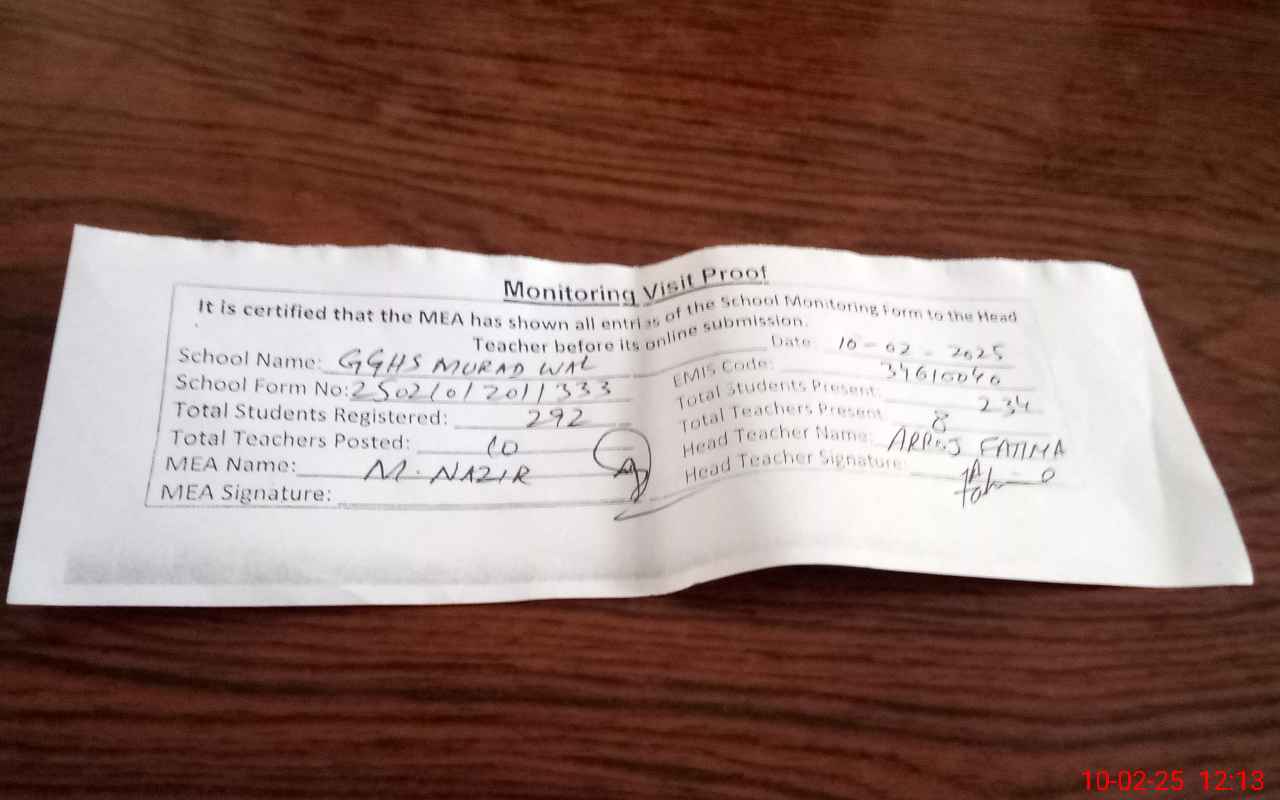 Monitoring Visit Proof
It is certified that the MEA has shown all entries of the School Monitoring Form to the Head
Teacher before its online submission.
School Name: GGHS MURAD WAL Date: 10-02-2025
School Form No: 25021012011333 EMIS Code: 34610040
Total Students Registered: 292 Total Students Present: 234
Total Teachers Posted: 10 Total Teachers Present 8
MEA Name: M. NAZIR Head Teacher Name: AROOJ FATIMA
MEA Signature: Head Teacher Signature:
10-02-25 12:13